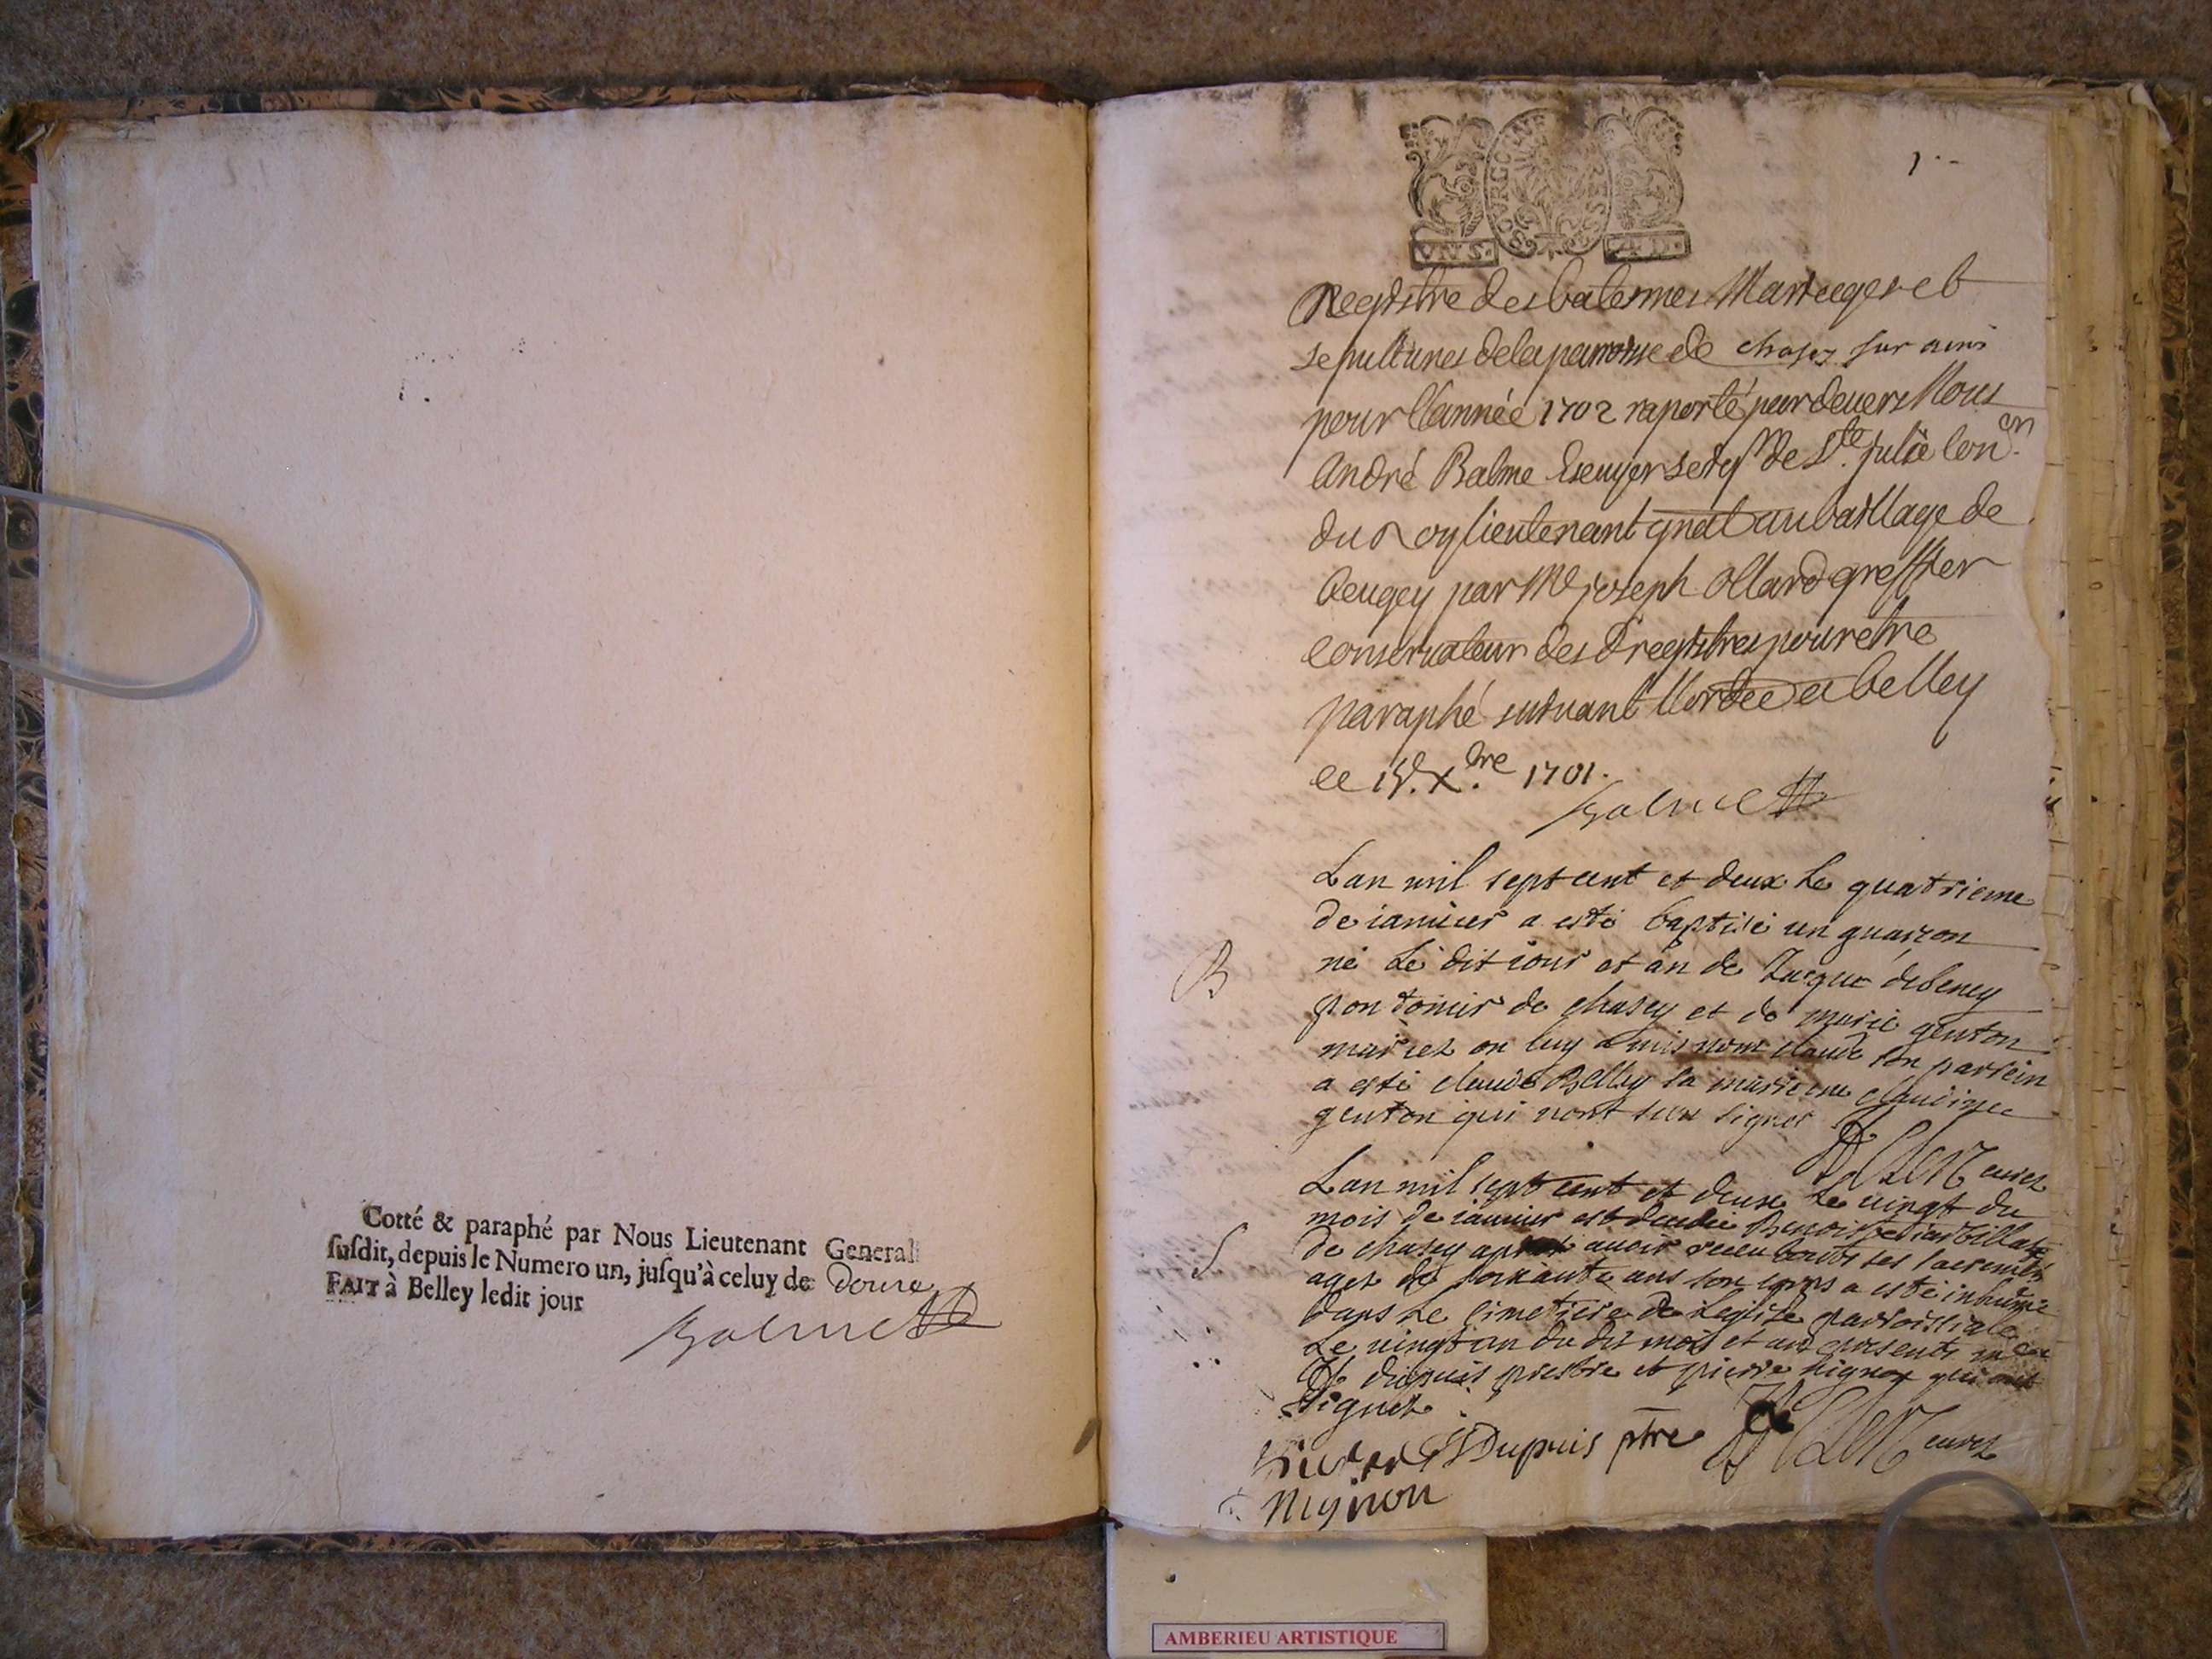 Cotté & paraphé par Nous Lieutenant General
susdit, depuis le Numero un, jusqu'à celuy de douze
FAIT à Belley ledit jour
Balme
1
BOURGOGNE BRESSE
VN S. 4 D.
Registre des batesmes Mariages et
sepultures de la parroisse de chasey sur ains
pour l'année 1702 raporté par devers Nous
André Balme Escuyer seigr de Ste Julie Con.er
du Roy lieutenant gnal au baillage de
Beugey par Me joseph Ollard greffier
conservateur des d registres pour etre
paraphé suivant l'ordce a belley
le 15. Xbre 1701.
Balme
Lan mil sept cent et deux le quatrieme
de ianuier a esté baptisé un guarzon
B
né le dit iour et an de Jacque debeney
pontonier de chasey et de marie genton
mariez on luy a mis nom claude son parrein
a esté claude Belley la marrene claudine
genton qui nont sceu signer
curez
Lan mil sept cent et deux le vingt du
mois de ianuier est decedee Benoiste
S
de chasey apres auoir receu touts ses sacrements
agez de soixante ans son corps a esté inhumé
dans le cimetiere de leglise parroissiale
le vingt un du dit mois et an presents
dupuis prestre et pierre mignon qui ont
signez
Pierre Dupuis ptre
curez
mignon
AMBERIEU ARTISTIQUE